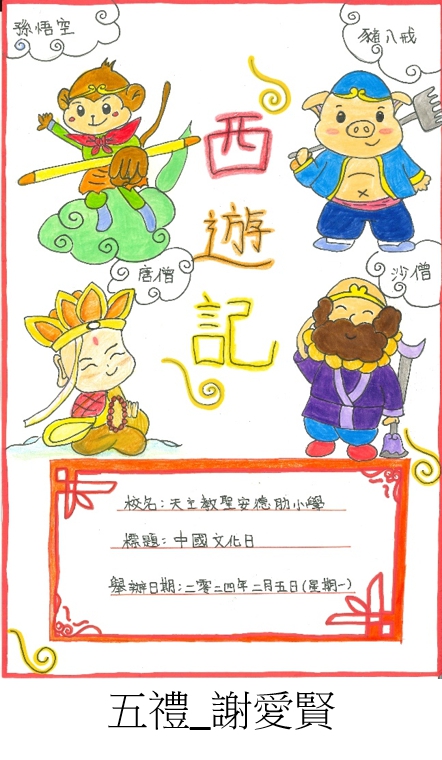 孫悟空
豬八戒
西
遊
記
唐僧
沙僧
校名：天主教聖安德肋小學
標題：中國文化日
舉辦日期：二零二四年二月五日(星期一)
五禮_謝愛賢